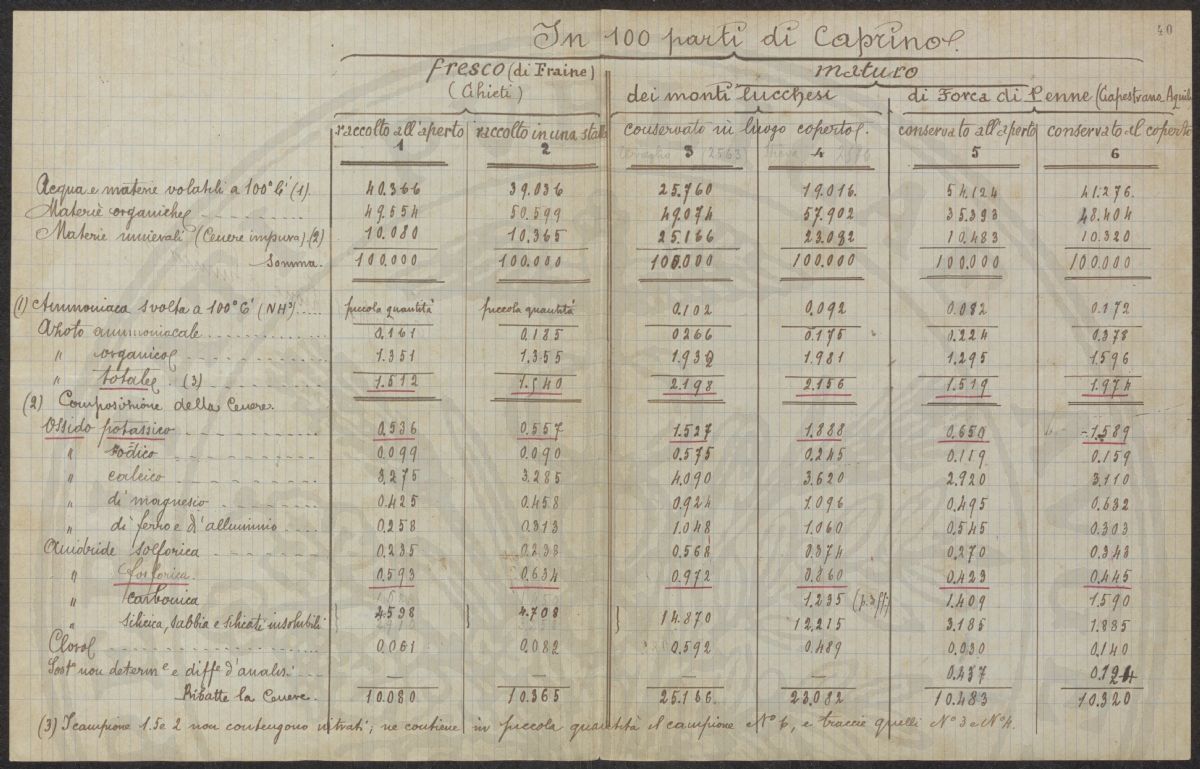 40
In 100 parti di Caprino.
fresco (di Fraine) maturo
(Chieti) dei monti lucchesi di Forca di Penne (Capestrano Aquila
raccolto all'aperto raccolto in una stalla conservato in luogo coperto. conservato all'aperto conservato al coperto
(2563)
1 2 3 4 5 6
Acqua e materie volatili a 100° C (1). 40.366 39.036 25.760 19.016. 54.124 41.276.
Materie organiche 49.554 50.599 49.074 57.902 35.393 48.404
Materie minerali (Cenere impura) (2) 10.080 10.365 25.166 23.082 10.483 10.320
Somma. 100.000 100.000 100.000 100.000 100.000 100.000
(1) Ammoniaca svolta a 100° C (NH³) piccola quantità piccola quantità 0.102 0.092 0.082 0.172
Azoto ammoniacale 0.161 0.185 0266 0.175 0.224 0.378
" organico 1.351 1.355 1.932 1.981 1.295 1596
" totale. (3) 1.512 1.540 2.198 2.156 1.519 1.974
(2) Composizione della Cenere.
Ossido potassico 0.536 0.557 1.527 1.888 0.650 1.589
" sodico 0.099 0.090 0.575 0.245 0.119 0.159
" calcico 3.275 3.285 4.090 3.620 2.920 3.110
" di magnesio 0.425 0.458 0.924 1.096 0.495 0.632
" di ferro e d'alluminio 0.258 0.313 1.048 1.060 0.545 0.303
Anidride solforica 0.235 0.238 0.568 0.374 0.270 0.343
" fosforica. 0.593 0.634 0.972 0.860 0.423 0.445
" carbonica 1.235 1.409 1.590
" silicica, sabbia e silicati insolubili } 4598 } 4.708 } 14.870 12.215 3.185 1.885
Cloro 0.061 0.082 0.592 0.489 0.030 0.140
Sost non determ.e e diff.e d'analisi — — — — 0.437 0.124
Ribatte la Cenere. 10.080 10.365 25.166 23.082 10.483 10.320
(3) I campione 1.5 e 2 non contengono nitrati; ne contiene in piccola quantità il campione N° 6, e traccie quelli N° 3 e N° 4.